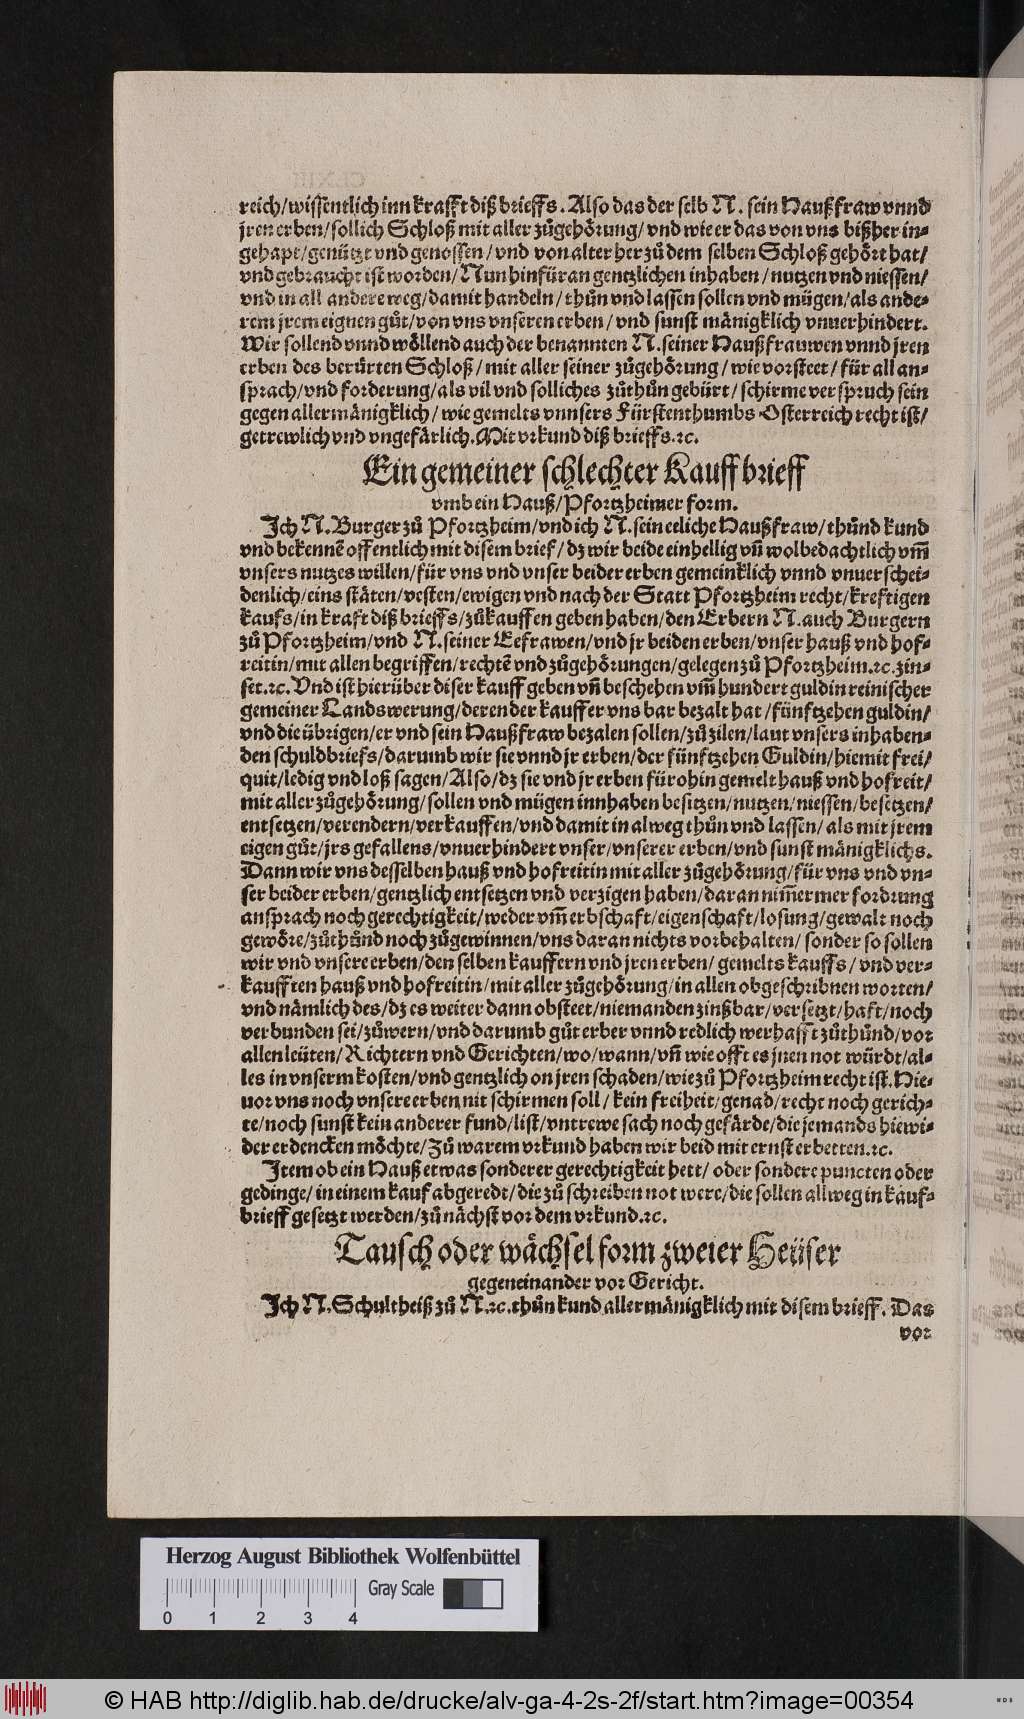 reich/wissentlich inn krafft diß brieffs. Also das der selb N. sein Haußfraw vnnd
jren erben/sollich Schloß mit aller zůgehörung/ vnd wie er das von vns bißher in-
gehapt/genützt vnd genossen/ vnd von alter her zů dem selben Schloß gehört hat/
vnd gebraucht ist worden/ Nun hinfür an gentzlichen inhaben/ nutzen vnd niessen/
vnd in all andere weg/damit handeln/ thůn vnd lassen sollen vnd mügen/als ande-
rem jrem eignen gůt/von vns vnseren erben/ vnd sunst mänigklich vnuerhindert.
Wir sollend vnnd wöllend auch der benannten N. seiner Haußfrauwen vnnd jren
erben des berürten Schloß/ mit aller seiner zůgehörung/ wie vorsteet/ für all an-
sprach/vnd forderung/als vil vnd solliches zůthůn gebürt/ schirme verspruch sein
gegen allermänigklich/ wie gemelts vnnsers Fürstenthumbs Osterreich recht ist/
getrewlich vnd vngefärlich. Mit vrkund diß brieffs.ꝛc.
Ein gemeiner schlechter Kauffbrieff
vmb ein Hauß/Pfortzheimer form.
Ich N. Burger zů Pfortzheim/vnd ich N. sein eeliche Haußfraw/ thůnd kund
vnd bekennē offentlich mit disem brief/ dz wir beide einhellig vn̄ wolbedachtlich vm̄
vnsers nutzes willen/für vns vnd vnser beider erben gemeinklich vnnd vnuerschei-
denlich/eins stäten/vesten/ewigen vnd nach der Statt Pfortzheim recht/kreftigen
kaufs/in kraft diß brieffs/zůkauffen geben haben/den Erbern N. auch Burgern
zů Pfortzheim/vnd N. seiner Eefrawen/vnd jr beiden erben/vnser hauß vnd hof-
reitin/mit allen begriffen/rechtē vnd zůgehörungen/gelegen zů Pfortzheim.ꝛc.zin-
set.ꝛc. Vnd ist hierüber diser kauff geben vn̄ beschehen vm̄ hundert guldin reinischer
gemeiner Landswerung/deren der kauffer vns bar bezalt hat/fünftzehen guldin/
vnd die übrigen/er vnd sein Haußfraw bezalen sollen/zů zilen/laut vnsers inhaben-
den schuldbriefs/darumb wir sie vnnd jr erben/der fünftzehen Guldin/hiemit frei/
quit/ledig vnd loß sagen/Also/dz sie vnd jr erben fürohin gemelt hauß vnd hofreit/
mit aller zůgehörung/sollen vnd mügen innhaben besitzen/nutzen/niessen/besetzen/
entsetzen/verendern/verkauffen/vnd damit in alweg thůn vnd lassen/ als mit jrem
eigen gůt/jrs gefallens/vnuerhindert vnser/vnserer erben/vnd sunst mänigklichs.
Dann wir vns desselben hauß vnd hofreitin mit aller zůgehörung/für vns vnd vn-
ser beider erben/gentzlich entsetzen vnd verzigen haben/daran nim̄ermer fordrung
ansprach noch gerechtigkeit/weder vm̄ erbschaft/eigenschaft/losung/gewalt noch
gewöre/zůthůnd noch zůgewinnen/vns daran nichts vorbehalten/ sonder so sollen
wir vnd vnsere erben/den selben kauffern vnd jren erben/ gemelts kauffs/ vnd ver-
kaufften hauß vnd hofreitin/mit aller zůgehörung/in allen obgeschribnen worten/
vnd nämlich des/dz es weiter dann obsteet/niemanden zinßbar/versetzt/haft/noch
verbunden sei/zůwern/vnd darumb gůt erber vnnd redlich werhafft zůthůnd/vor
allen leüten/Richtern vnd Gerichten/wo/wann/vn̄ wie offt es jnen not würdt/al-
les in vnserm kosten/vnd gentzlich on jren schaden/wie zů Pfortzheim recht ist. Hie-
uor vns noch vnsere erben nit schirmen soll/ kein freiheit/genad/recht noch gerich-
te/noch sunst kein anderer fund/list/vntrewe sach noch gefärde/die jemands hiewi-
der erdencken möchte/Zů warem vrkund haben wir beid mit ernst erbetten.ꝛc.
Item ob ein Hauß etwas sonderer gerechtigkeit hett/ oder sondere puncten oder
gedinge/in einem kauf abgeredt/die zů schreiben not were/die sollen allweg in kauf-
brieff gesetzt werden/zů nächst vor dem vrkund.ꝛc.
Tausch oder wächsel form zweier Heüser
gegeneinander vor Gericht.
Ich N. Schultheiß zů N.ꝛc.thůn kund allermänigklich mit disem brieff. Das
vor
Herzog August Bibliothek Wolfenbüttel
Gray Scale
0 1 2 3 4
© HAB http://diglib.hab.de/drucke/alv-ga-4-2s-2f/start.htm?image=00354